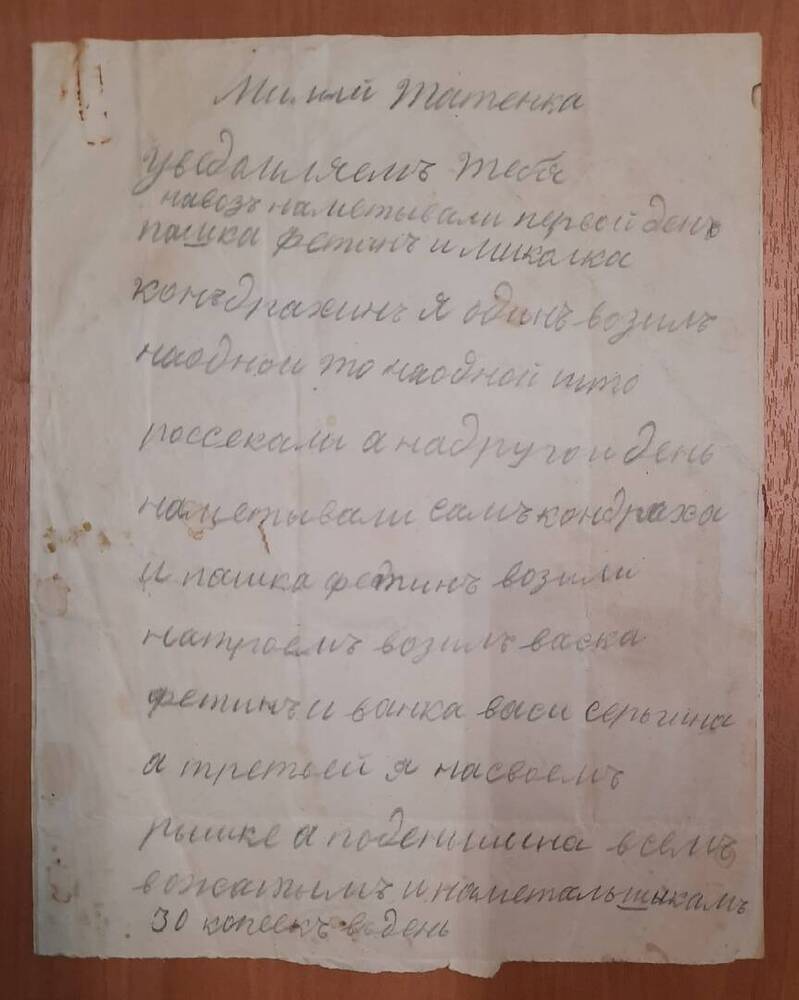 Милий Татенка
уведомляемъ тебя
навозъ наметывали первой денъ
пашка фетинъ и миколка
конъдрахинъ я одинъ возилъ
наодной то наодной што
россекали а надругой день
наметывали самъ кондраха
и пашка фетинъ возили
натроемъ возилъ васка
фетинъ и ванка васи серьгина
а третьей я насвоемъ
рышке а поденьшина всемъ
вожатымъ и наметальшикамъ
30 копеекъ вдень